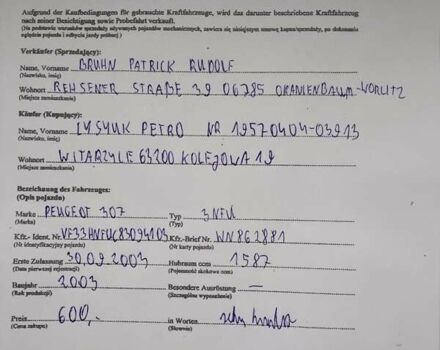 Aufgrund der Kaufbedingungen für gebrauchte Kraftfahrzeuge, wird das darunter beschriebene Kraftfahrzeug
nach seiner Besichtigung sowie Probefahrt verkauft.
(Na podstawie warunków sprzedaży używanych pojazdów mechanicznych, zawiera się niniejszym umowę kupna/sprzedaży, po dokonaniu
oględzin pojazdu i odbycia jazdy próbnej.)
Verkäufer (Sprzedający):
Name, Vorname BRUHN PATRICK RUDOLF
(Nazwisko, imię)
Wohnort REHSENER STRAßE 39 06785 ORANIENBAUM-WÖRLITZ
(Miejsce zamieszkania)
Käufer (Kupujący):
Name, Vorname LYSYUK PETRO NR 19570404-03913
(Nazwisko, imię)
Wohnort WITARZYCE 63200 KOLEJOWA 19
(Miejsce zamieszkania)
Bezeichnung des Fahrzeuges:
(Opis pojazdu)
Marke PEUGEOT 307 Typ 3NFU
(Marka) (Typ)
Kfz.- Ident. Nr. VF33HNFUC83094103 Kfz.-Brief Nr. WN862881
(Nr identyfikacyjny pojazdu) (Nr karty pojazdu)
Erste Zulassung 30.09.2003 Hubraum ccm 1587
(Data pierwszej rejestracji) (Pojemność skokowa ccm)
Baujahr 2003 Besondere Ausrüstung —
(Rok produkcji) (Szczególne wyposażenie)
Preis 600,- in Worten
(Cena zakupu) (Słownie)